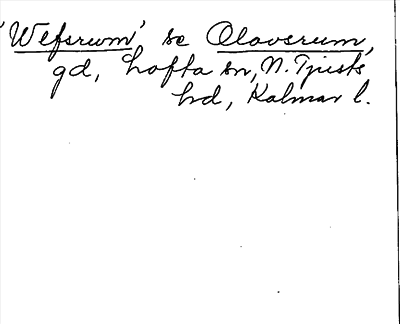 'Wefsrwm' se Olovsrum,
gd, Lofta sn, N. Tjusts
hd, Kalmar l.